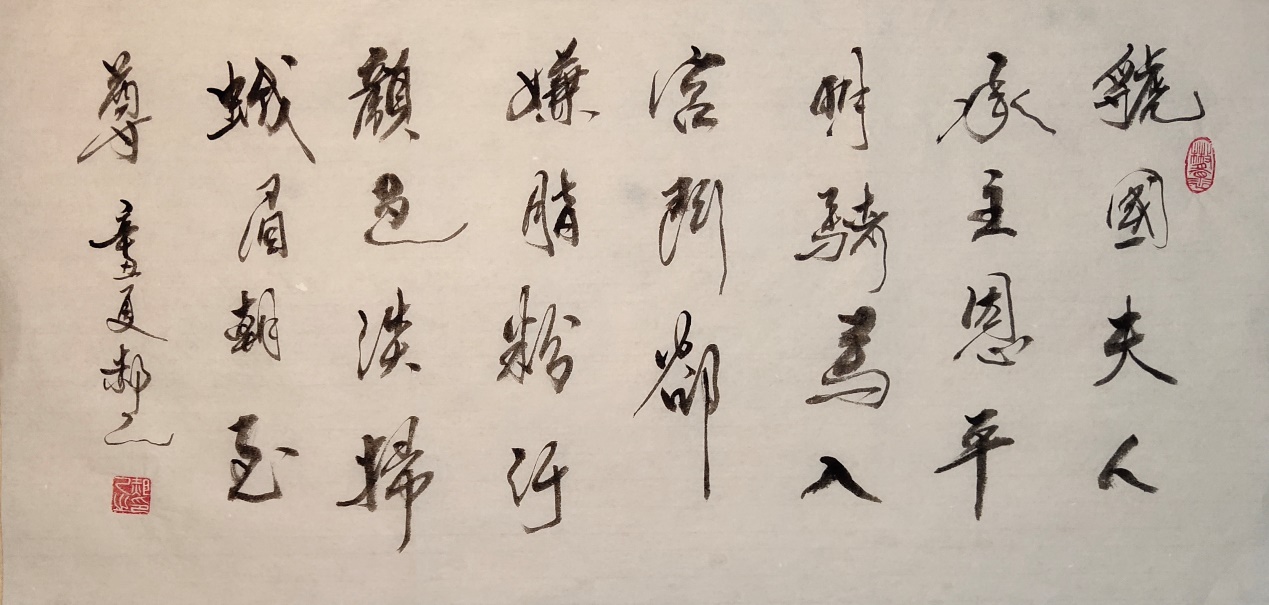 虢國夫人
承主恩平
明騎馬入
宮門卻
嫌脂粉汙
顏色淡掃
蛾眉朝至
尊 辛丑夏郝